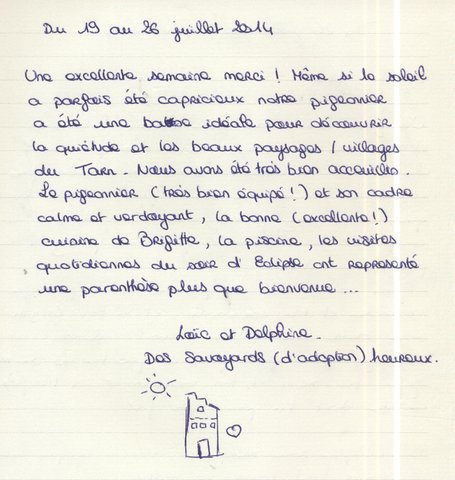 Du 19 au 26 juillet 2014
Une excellente semaine merci ! Même si le soleil
a parfois été capricieux notre pigeonnier
a été une base idéale pour découvrir
la quiétude et les beaux paysages / villages
du Tarn. Nous avons été très bien accueillis.
Le pigeonnier (très bien équipé !) et son cadre
calme et verdoyant, la bonne (excellente !)
cuisine de Brigitte, la piscine, les visites
quotidiennes du soir d'Eclipse ont représenté
une parenthèse plus que bienvenue ...
Loïc et Delphine.
Des Savoyards (d'adoption) heureux.